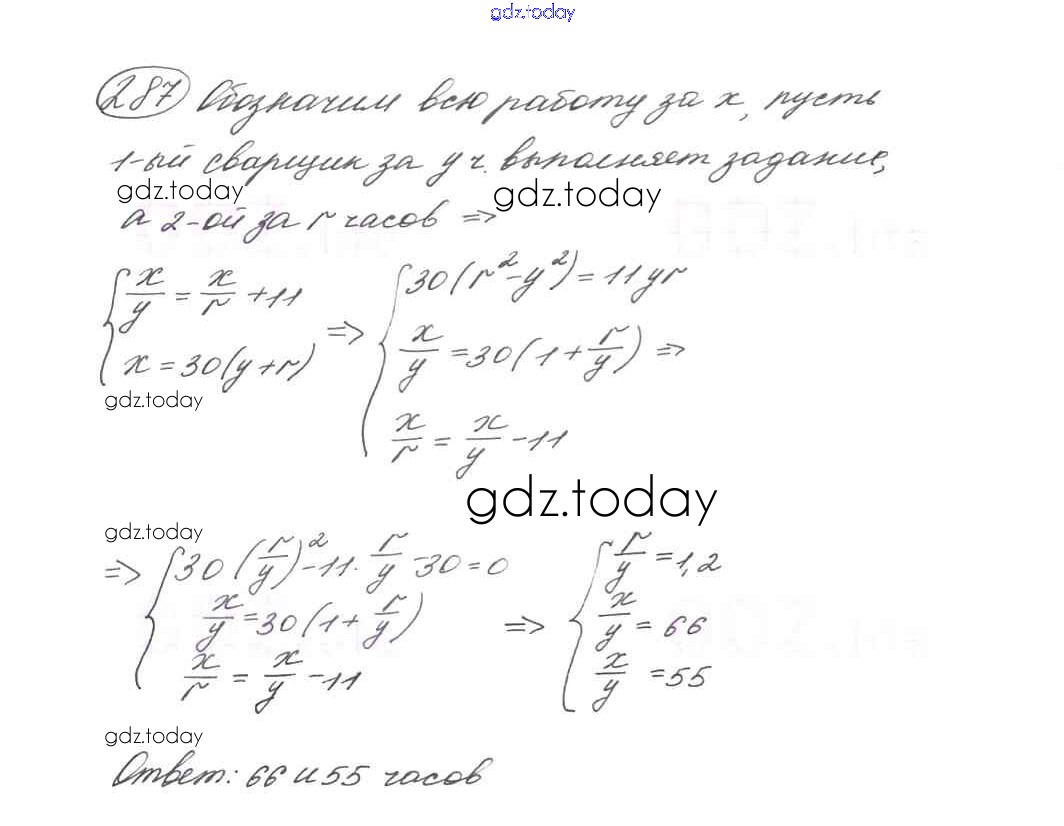 gdz.today
287 Обозначим всю работу за x, пусть
1-ый сварщик за y ч. выполняет задание,
gdz.today gdz.today
а 2-ой за r часов =>
{ x/y = x/r + 11
x = 30(y+r)
=> { 30(r² - y²) = 11yr
x/y = 30(1 + r/y) =>
x/r = x/y - 11
gdz.today
gdz.today
gdz.today
=> { 30(r/y)² - 11 · r/y - 30 = 0
x/y = 30(1 + r/y)
x/r = x/y - 11
=> { r/y = 1,2
x/y = 66
x/y = 55
gdz.today
Ответ: 66 и 55 часов